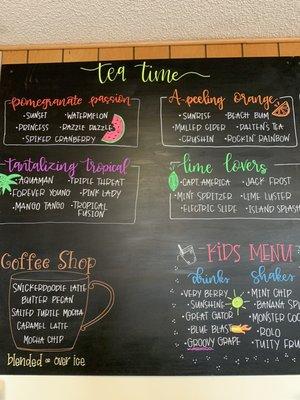 tea time
pomegranate passion
•Sunset •Watermelon
•Princess •Razzle Dazzle
•Spiked Cranberry
A-peeling orange
•Sunrise •Beach Bum
•Mulled Cider •Daliten's Tea
•Crushin •Rockin' Rainbow
tantalizing tropical
•Aquaman •Triple Threat
•Forever Young •Pink Lady
•Mango Tango •Tropical
Fusion
lime lovers
•Capt. America •Jack Frost
•Mint Spritzer •Lime Luster
•Electric Slide •Island Splash
Coffee Shop
Snickerdoodle Latte
Butter Pecan
Salted Turtle Mocha
Caramel Latte
Mocha Chip
blended or over ice
Kids Menu
drinks
•Very Berry
•Sunshine
•Great Gator
•Blue Blast
•Groovy Grape
shakes
•Mint Chip
•Banana
•Monster Coo
•Rolo
•Tutti Fru